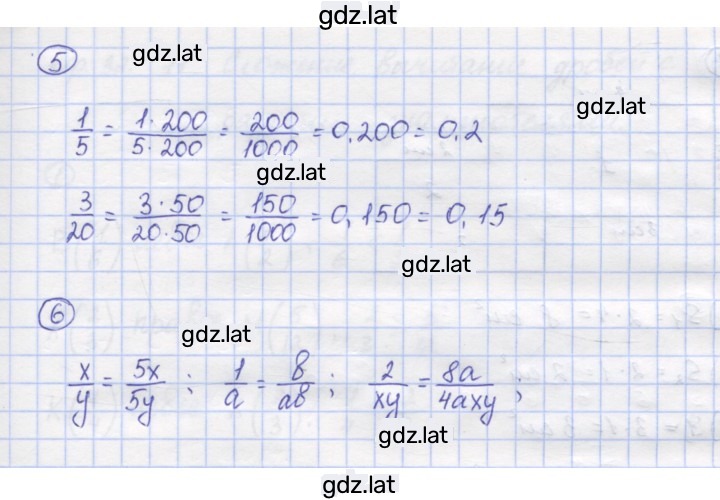 gdz.lat
5 gdz.lat
gdz.lat
1/5 = 1·200/5·200 = 200/1000 = 0,200 = 0,2
gdz.lat
3/20 = 3·50/20·50 = 150/1000 = 0,150 = 0,15
gdz.lat
6
gdz.lat
x/y = 5x/5y ; 1/a = в/ав ; 2/xy = 8a/4axy ;
gdz.lat
gdz.lat